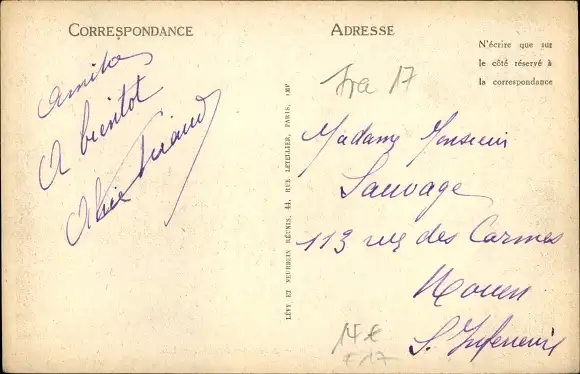 CORRESPONDANCE
Amitiés
A bientôt
ADRESSE
N'écrire que sur
le côté réservé à
la correspondance
fra 17
Madame Monsieur
Sauvage
113 rue des Carmes
Rouen
S. Inférieure
LÉVY ET NEURDEIN RÉUNIS, 44, RUE LETELLIER, PARIS, IMP
14€